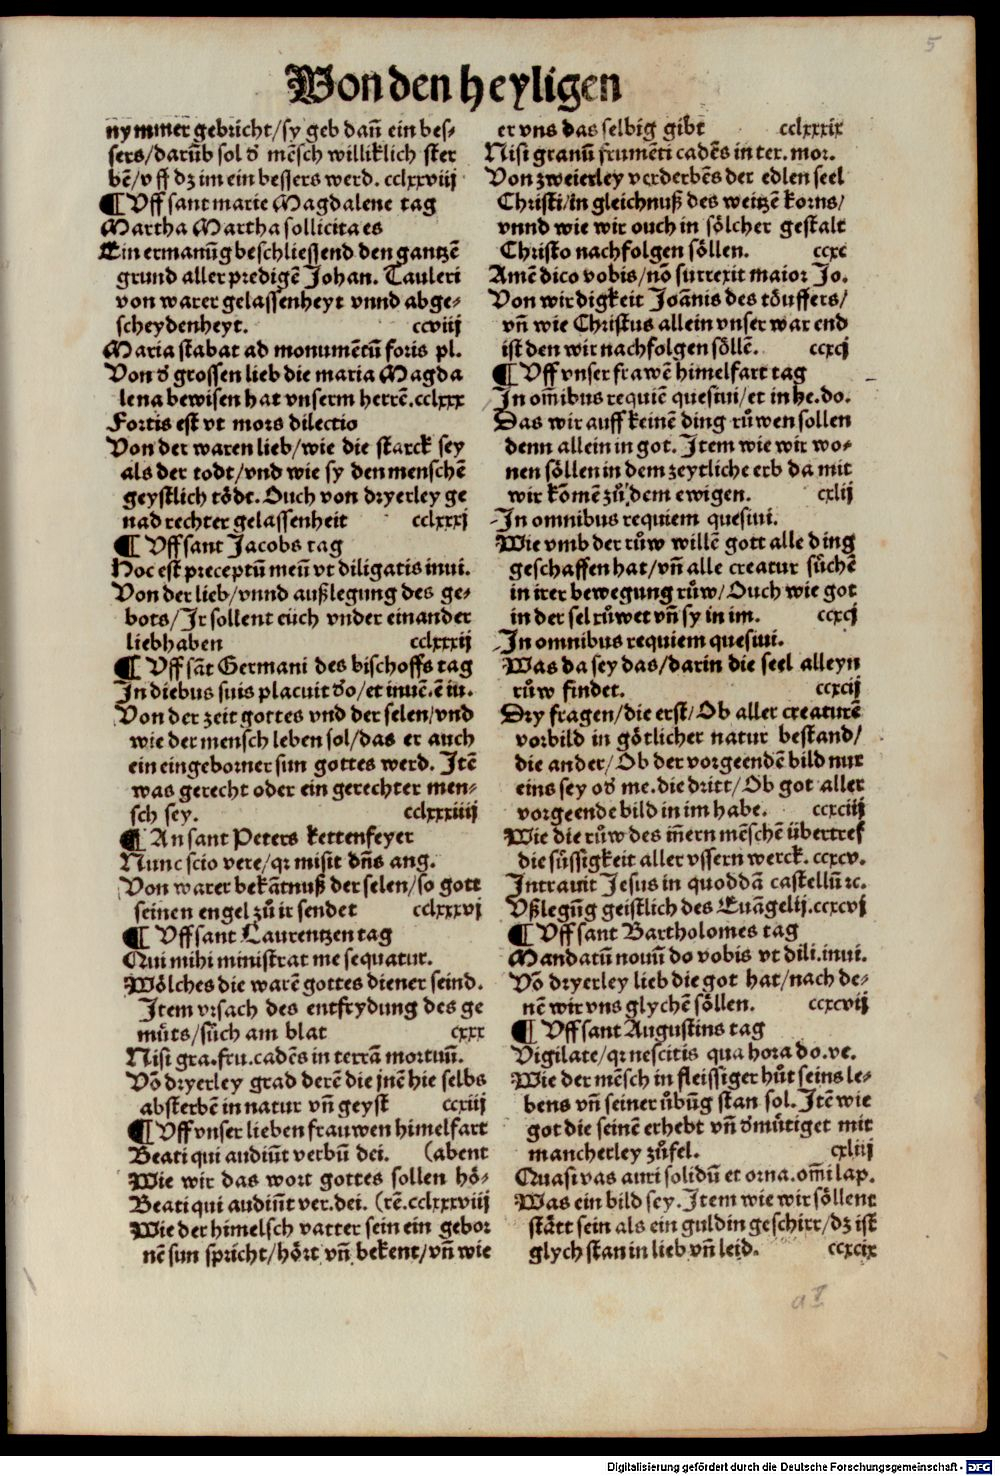 5
Von den heyligen
nymmer gebricht/sy geb dañ ein bes-
sers/darũb sol ð mẽsch williklich ster
bẽ/vff dz im ein bessers werd. cclxxviij
¶ Vff sant marie Magdalene tag
Martha Martha sollicita es
Ein ermanũg beschliessend den gantzẽ
grund aller predigẽ Johan. Tauleri
von warer gelassenheyt vnnd abge-
scheydenheyt. ccviij
Maria stabat ad monumẽtũ foris pl.
Von ð grossen lieb die maria Magda
lena bewisen hat vnserm herrẽ. cclxxx
Fortis est vt mors dilectio
Von der waren lieb/wie die starck sey
als der todt/vnd wie sy den menschẽ
geystlich tödt. Ouch von dryerley ge
nad rechter gelassenheit cclxxxj
¶ Vff sant Jacobs tag
Hoc est preceptũ meũ vt diligatis inui.
Von der lieb/vnnd außlegung des ge-
bots/Jr sollent eüch vnder einander
liebhaben cclxxxij
¶ Vff sãt Germani des bischoffs tag
In diebus suis placuit ðo/et inuẽ.ẽ iu.
Von der zeit gottes vnd der selen/vnd
wie der mensch leben sol/das er auch
ein eingeborner sun gottes werd. Jtẽ
was gerecht oder ein gerechter men-
sch sey. cclxxxiiij
¶ An sant Peters kettenfeyer
Nunc scio vere/qꝛ misit dñs ang.
Von warer bekãtnuß der selen/so gott
seinen engel zů ir sendet cclxxxvj
¶ Vff sant Laurentzen tag
Qui mihi ministrat me sequatur.
Wölches die warẽ gottes diener seind.
Item vrsach des entfrydung des ge
můts/sůch am blat cxxx
Nisi gra.fru.cadẽs in terrã mortuũ.
Võ dryerley grad derẽ die jnẽ hie selbs
absterbẽ in natur vñ geyst ccxiij
¶ Vff vnser lieben frauwen himelfart
Beati qui audiũt verbũ dei. (abent
Wie wir das wort gottes sollen hö-
Beati qui audiũt ver.dei. (rẽ.cclxxxviij
Wie der himelsch vatter sein ein gebor
nẽ sun spricht/hört vñ bekent/vñ wie
er vns das selbig gibt cclxxxix
Nisi granũ frumẽti cadẽs in ter. mor.
Von zweierley verderbẽs der edlen seel
Christi/in gleichnuß des weitzẽ korns/
vnnd wie wir ouch in sölcher gestalt
Christo nachfolgen söllen. ccxc
Amẽ dico vobis/nõ surrexit maior Jo.
Von wirdigkeit Joãnis des töuffers/
vñ wie Christus allein vnser war end
ist den wir nachfolgen söllẽ. ccxcj
¶ Vff vnser frawẽ himelfart tag
In om̃ibus requiẽ quesiui/et in he.do.
Das wir auff keinẽ ding růwen sollen
denn allein in got. Item wie wir wo-
nen söllen in dem zeytliche erb da mit
wir kõmẽ zů dem ewigen. cxlij
In omnibus requiem quesiui.
Wie vmb der růw willẽ gott alle ding
geschaffen hat/vñ alle creatur sůchẽ
in irer bewegung růw/Ouch wie got
in der sel růwet vñ sy in im. ccxcj
In omnibus requiem quesiui.
Was da sey das/darin die seel alleyn
růw findet. ccxcij
Dry fragen/die erst/Ob aller creaturẽ
vorbild in götlicher natur bestand/
die ander/Ob der vorgeendẽ bild nur
eins sey oð me. die dritt/Ob got aller
vorgeende bild in im habe. ccxciij
Wie die růw des iñern mẽschẽ übertref
die süssigkeit aller vssern werck. ccxcv.
Intrauit Jesus in quoddã castellũ ꝛc.
Vßlegũg geistlich des Euãgelij.ccxcvj
¶ Vff sant Bartholomes tag
Mandatũ nouũ do vobis vt dili.inui.
Võ dryerley lieb die got hat/nach de-
nẽ wir vns glychẽ söllen. ccxcvij
¶ Vff sant Augustins tag
Vigilate/qꝛ nescitis qua hora do.ve.
Wie der mẽsch in fleissiger hůt seins le-
bens vñ seiner übũg stan sol. Jtẽ wie
got die seinẽ erhebt vñ ðmütiget mit
mancherley zůfel. cxliij
Quasi vas auri solidũ et orna.om̃i lap.
Was ein bild sey. Item wie wir söllent
stätt sein als ein guldin geschirr/dz ist
glych stan in lieb vñ leid. ccxcix
a V
Digitalisierung gefördert durch die Deutsche Forschungsgemeinschaft - DFG